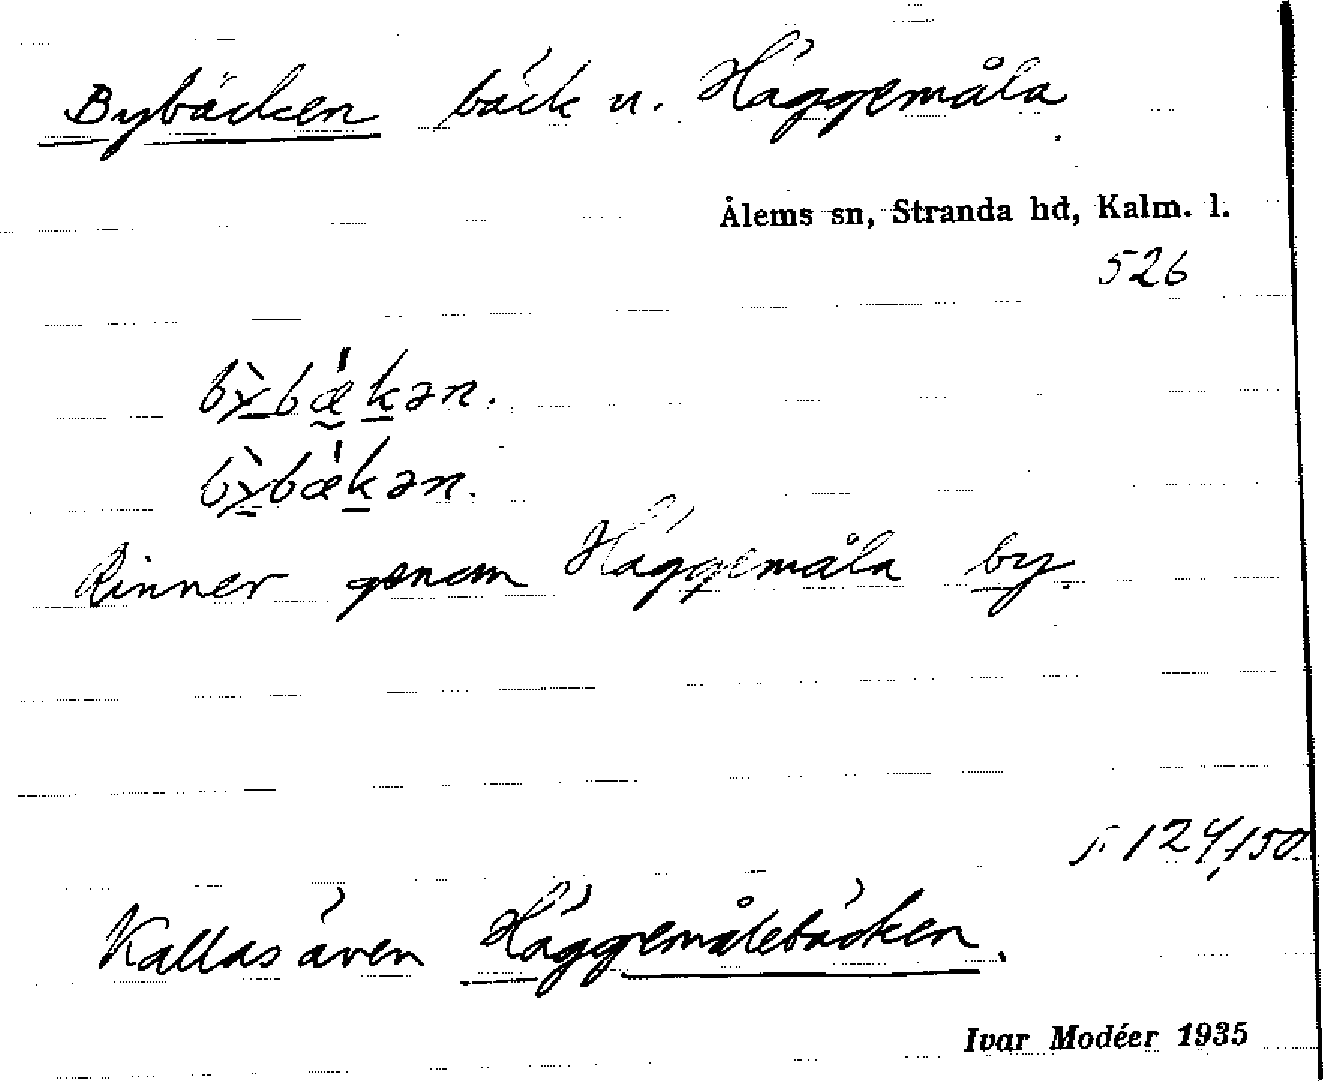 Bybäcken bäck u. Häggemåla
Ålems sn, Stranda hd, Kalm. l.
526
bỳbækən.
bỳbækən.
Rinner genom Häggemåla by.
s. 124, 150.
Kallas även Häggemålebäcken.
Ivar Modéer 1935